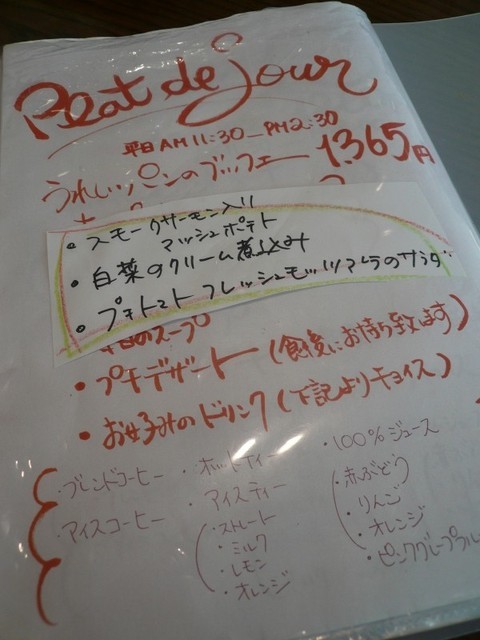 Plat de jour
平日 AM 11:30_PM 2:30
うれしいパンのブッフェー 1365円
・スモークサーモン入り
マッシュポテト
・白菜のクリーム煮込み
・プチトマト フレッシュモッツァレラのサラダ
本日のスープ
・プチデザート (食後にお持ち致します)
・お好みのドリンク (下記よりチョイス)
・ブレンドコーヒー ・ホットティー ・100%ジュース
・アイスコーヒー ・アイスティー ・赤ぶどう
・ストレート ・りんご
・ミルク ・オレンジ
・レモン ・ピンクグレープフル
・オレンジ